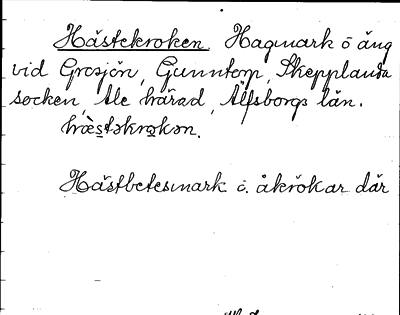 Hästekroken Hagmark o äng
vid Grosjön, Gunntorp, Skepplanda
socken, Ale härad, Älfsborgs län.
hæstəkrokən.
Hästbetesmark o. åkrökar där